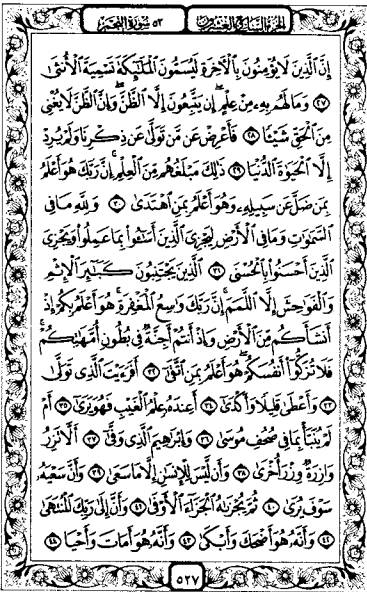 الجزء السابع والعشرون ٥٣ سورة النجم
إِنَّ ٱلَّذِينَ لَا يُؤْمِنُونَ بِٱلْأَخِرَةِ لَيُسَمُّونَ ٱلْمَلَـٰٓئِكَةَ تَسْمِيَةَ ٱلْأُنثَىٰ
٢٧ وَمَا لَهُم بِهِۦ مِنْ عِلْمٍ إِن يَتَّبِعُونَ إِلَّا ٱلظَّنَّ وَإِنَّ ٱلظَّنَّ لَا يُغْنِى
مِنَ ٱلْحَقِّ شَيْـًٔا ٢٨ فَأَعْرِضْ عَن مَّن تَوَلَّىٰ عَن ذِكْرِنَا وَلَمْ يُرِدْ
إِلَّا ٱلْحَيَوٰةَ ٱلدُّنْيَا ٢٩ ذَٰلِكَ مَبْلَغُهُم مِّنَ ٱلْعِلْمِ إِنَّ رَبَّكَ هُوَ أَعْلَمُ
بِمَن ضَلَّ عَن سَبِيلِهِۦ وَهُوَ أَعْلَمُ بِمَنِ ٱهْتَدَىٰ ٣٠ وَلِلَّهِ مَا فِى
ٱلسَّمَـٰوَٰتِ وَمَا فِى ٱلْأَرْضِ لِيَجْزِىَ ٱلَّذِينَ أَسَـٰٓـُٔوا۟ بِمَا عَمِلُوا۟ وَيَجْزِىَ
ٱلَّذِينَ أَحْسَنُوا۟ بِٱلْحُسْنَى ٣١ ٱلَّذِينَ يَجْتَنِبُونَ كَبَـٰٓئِرَ ٱلْإِثْمِ
وَٱلْفَوَٰحِشَ إِلَّا ٱللَّمَمَ إِنَّ رَبَّكَ وَٰسِعُ ٱلْمَغْفِرَةِ هُوَ أَعْلَمُ بِكُمْ إِذْ
أَنشَأَكُم مِّنَ ٱلْأَرْضِ وَإِذْ أَنتُمْ أَجِنَّةٌ فِى بُطُونِ أُمَّهَـٰتِكُمْ
فَلَا تُزَكُّوٓا۟ أَنفُسَكُمْ هُوَ أَعْلَمُ بِمَنِ ٱتَّقَىٰٓ ٣٢ أَفَرَءَيْتَ ٱلَّذِى تَوَلَّىٰ
٣٣ وَأَعْطَىٰ قَلِيلًا وَأَكْدَىٰٓ ٣٤ أَعِندَهُۥ عِلْمُ ٱلْغَيْبِ فَهُوَ يَرَىٰٓ ٣٥ أَمْ
لَمْ يُنَبَّأْ بِمَا فِى صُحُفِ مُوسَىٰ ٣٦ وَإِبْرَٰهِيمَ ٱلَّذِى وَفَّىٰٓ ٣٧ أَلَّا تَزِرُ
وَازِرَةٌ وِزْرَ أُخْرَىٰ ٣٨ وَأَن لَّيْسَ لِلْإِنسَـٰنِ إِلَّا مَا سَعَىٰ ٣٩ وَأَنَّ سَعْيَهُۥ
سَوْفَ يُرَىٰ ٤٠ ثُمَّ يُجْزَىٰهُ ٱلْجَزَآءَ ٱلْأَوْفَىٰ ٤١ وَأَنَّ إِلَىٰ رَبِّكَ ٱلْمُنتَهَىٰ
٤٢ وَأَنَّهُۥ هُوَ أَضْحَكَ وَأَبْكَىٰ ٤٣ وَأَنَّهُۥ هُوَ أَمَاتَ وَأَحْيَا ٤٤
٥٢٧